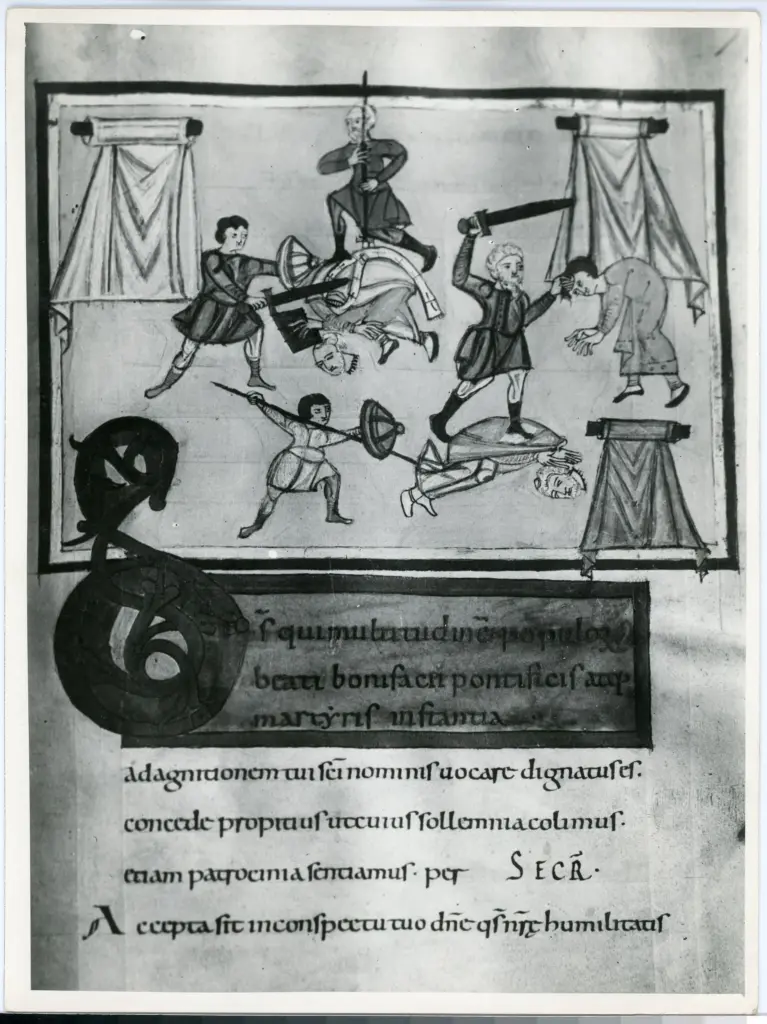 DS qui multitudinē populoꝝ
beati bonifacii pontificis atq;
martyris instantia
ad agnitionem tui sc̄i nominis uocare dignatus es.
concede propitius ut cuius sollemnia colimus.
etiam patrocinia sentiamus. per SECR̄.
Accepta sit in conspectu tuo dn̄e qs̄ nr̄ę humilitatis